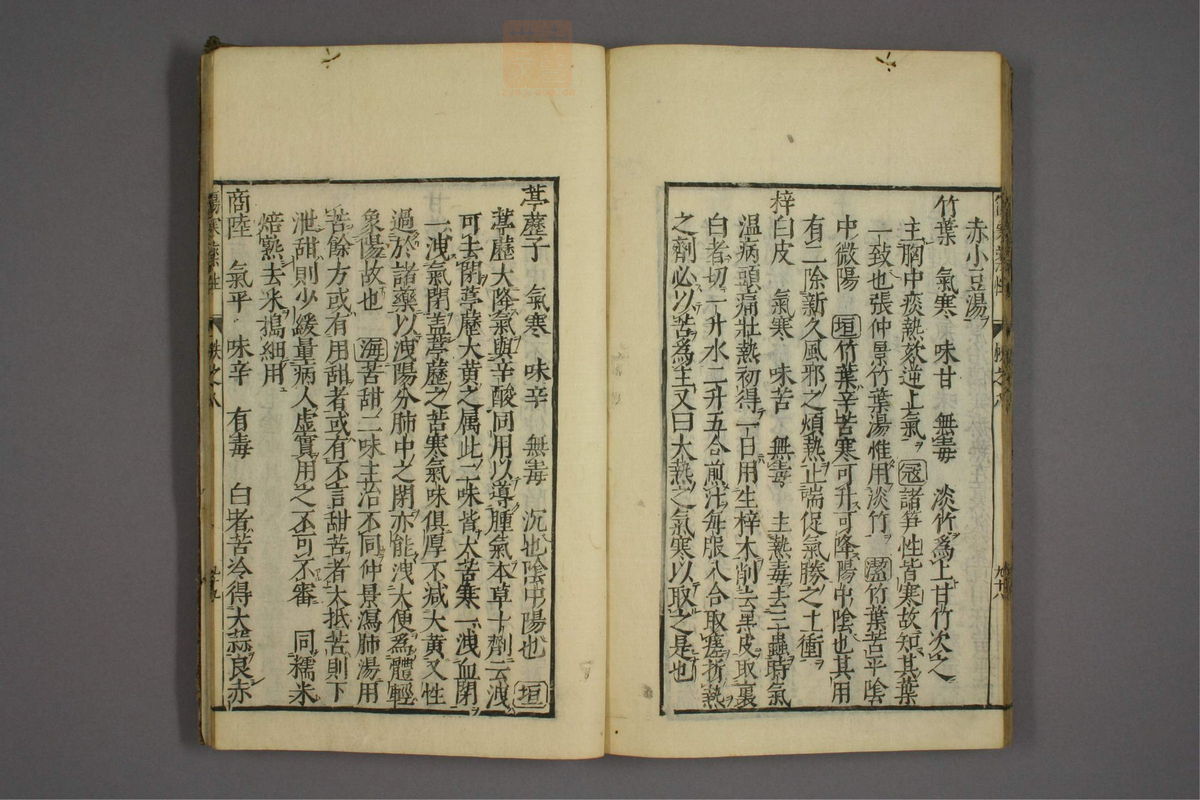 赤小豆湯
竹葉　氣寒　味甘　無毒　淡竹爲上甘竹次之
主胸中痰熱欬逆上氣　冦諸笋性皆寒故知其葉
一致也張仲景竹葉湯惟用淡竹　潔竹葉苦平陰
中微陽　垣竹葉辛苦寒可升可降陽中陰也其用
有二除新久風邪之煩熱止喘促氣勝之上衝
梓白皮　氣寒　味苦　無毒　主熱毒去三蟲時氣
温病頭痛壯熱初得一日用生梓木削去黒皮取裏
白者切一升水二升五合煎汁毎服八合取瘥折熱
之劑必以苦爲主又曰大熱之氣寒以取之是也
葶藶子　氣寒　味辛　無毒　沉也陰中陽也　垣
葶藶大降氣與辛酸同用以導腫氣本草十劑云洩
可去閉葶藶大黄之属此二味皆大苦寒一洩血閉
一洩氣閉蓋葶藶之苦寒氣味俱厚不減大黄又性
過於諸藥以洩陽分肺中之閉亦能洩大便爲體輕
象陽故也　海苦甜二味主治不同仲景瀉肺湯用
苦餘方或有用甜者或有不言甜苦者大抵苦則下
泄甜則少緩量病人虚實用之不可不審　同糯米
焙熟去米搗細用
商陸　氣平　味辛　有毒　白者苦冷得大蒜良赤